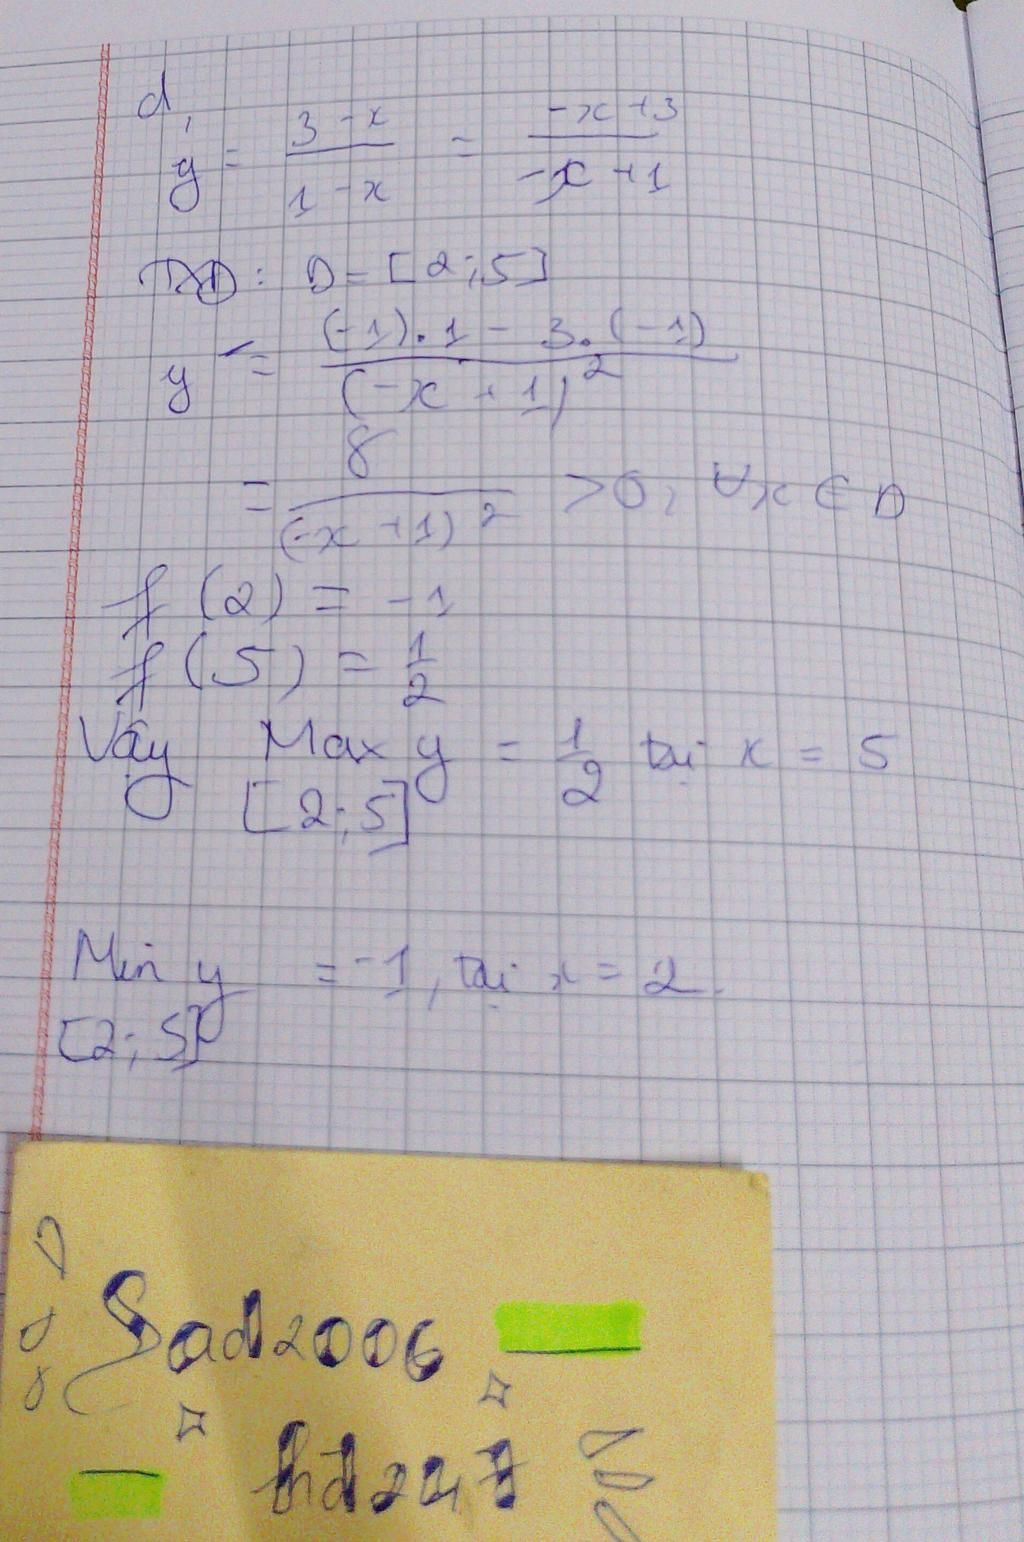 d,
y = (3 - x)/(1 - x) = (-x + 3)/(-x + 1)
TXĐ: D = [2; 5]
y' = ((-1).1 - 3.(-1))/(-x + 1)²
= 8/(-x + 1)² > 0, ∀x ∈ D
f(2) = -1
f(5) = 1/2
Vậy Max y = 1/2 tại x = 5
[2; 5]
Min y = -1, tại x = 2
[2; 5]
Sad2006
hd247